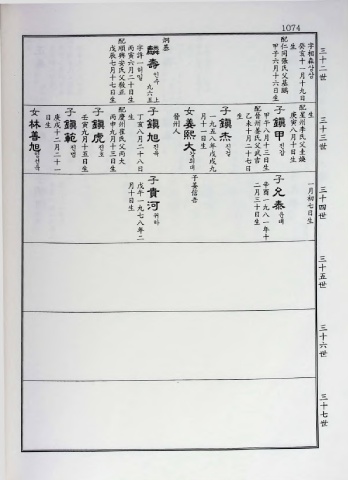 1074
三十二世
字相森상삼
癸亥十一月十九日
生
配仁同張氏父基鵬
甲子六月十六日生
洞基
麟壽인수
九六五上
字許一허일
丙寅六月二十日生
配順興安氏父敬正
戊辰七月十七日生
三十三世
生
配星州李氏父圭煥
庚寅八月十日生
子鎭甲진갑
甲午八月十三日生
配晉州姜氏父武吉
乙未十月二十七日
生
子鎭杰진걸
一九五八年戊戌九
月十一日生
女姜熙大강희대
晉州人
子鎭旭진욱
丁亥八月二十八日
生
配慶州崔氏父丙大
丙申九月十三日生
子鎭虎진호
壬寅九月十五日生
子鎭範진범
庚戌十二月二十一
日生
女林善旭임선욱
三十四世
一月初七日生
子允泰윤태
辛酉一九八一年十
二月三十日生
子姜信吾
子貴河귀하
戊午一九七八年二
月十日生
三十五世
三十六世
三十七世